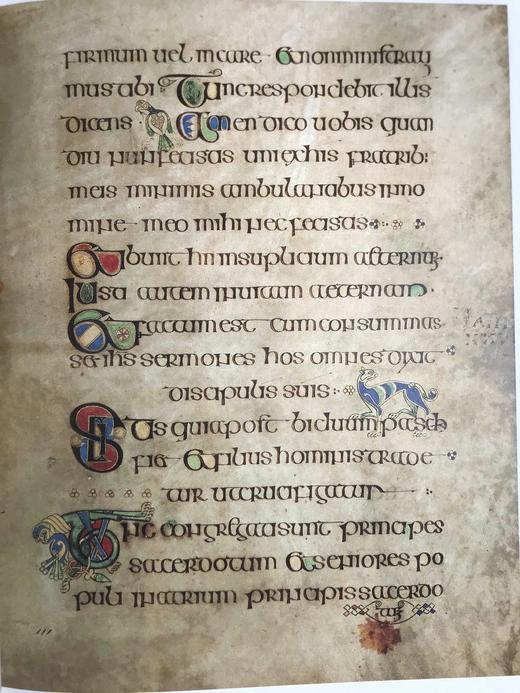 firmum uel Et non ministraui
mus tibi · Tunc respondebit illis
dicens Amen dico uobis quam
diu non fecistis uni exhis fratrib:
meis minimis ambulantibus inno
mine meo mihi nec fecistis
Et ibunt hii insuplicium aeternu
Iusti autem inuitam aeternam ·
Et factum est cum consummas
set ihs sermones hos omnes dixit
discipulis suis
Scitis quia post biduum pasch
fiet Et filius hominis trade
tur utcrucifigatur
Tunc congregati sunt principes
sacerdotum Et seniores po
puli inatrium principis sacerdo